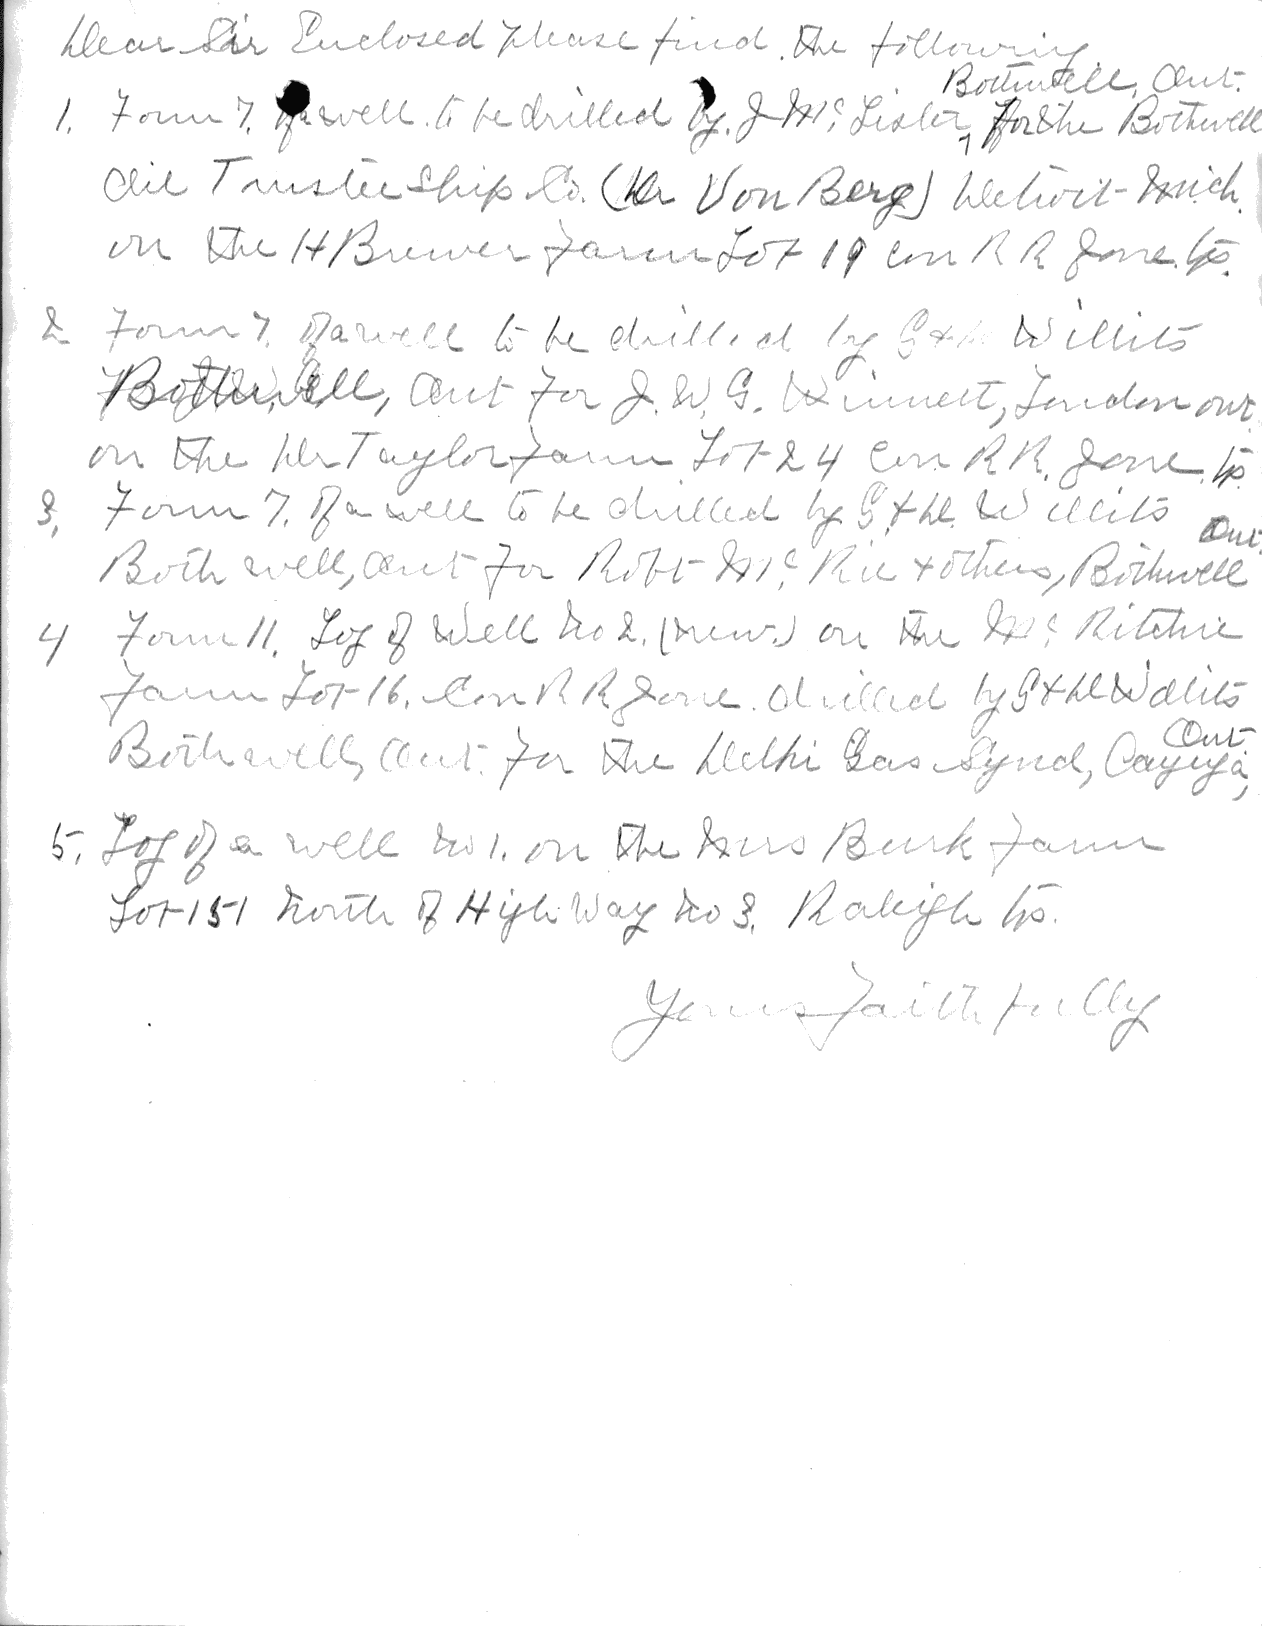 Dear Sir Enclosed please find. the following
Bothwell, Ont.
1. Form 7. of a well. to be drilled by. J Mc. Lister, for the Bothwell
Oil Trustee Ship Co. (Dr Von Berg) Detroit Mich.
on the H Brewer farm Lot 19 con R R Zone. tp.
2 Form 7. of a well to be drilled by G + D Willits
Bothwell, Ont for J. W. G. Winnett, London Ont.
on the Dr Taylor farm Lot 24 Con. R R. Zone. tp.
3, Form 7. of a well to be drilled by G. + D. Willits
Ont.
Bothwell, Ont for Robt Mc. Rie + others, Bothwell
4 Form 11. Log of Well No 2. (new.) on the Mc. Ritchie
farm Lot 16. Con R R Zone. drilled by G + D Willits
Ont.
Bothwell, Ont. for the Delhi Gas Synd, Cayuga,
5. Log of a well No 1. on the Mrs Burk farm
Lot 151 North of High Way No 3. Raleigh tp.
Yours faithfully